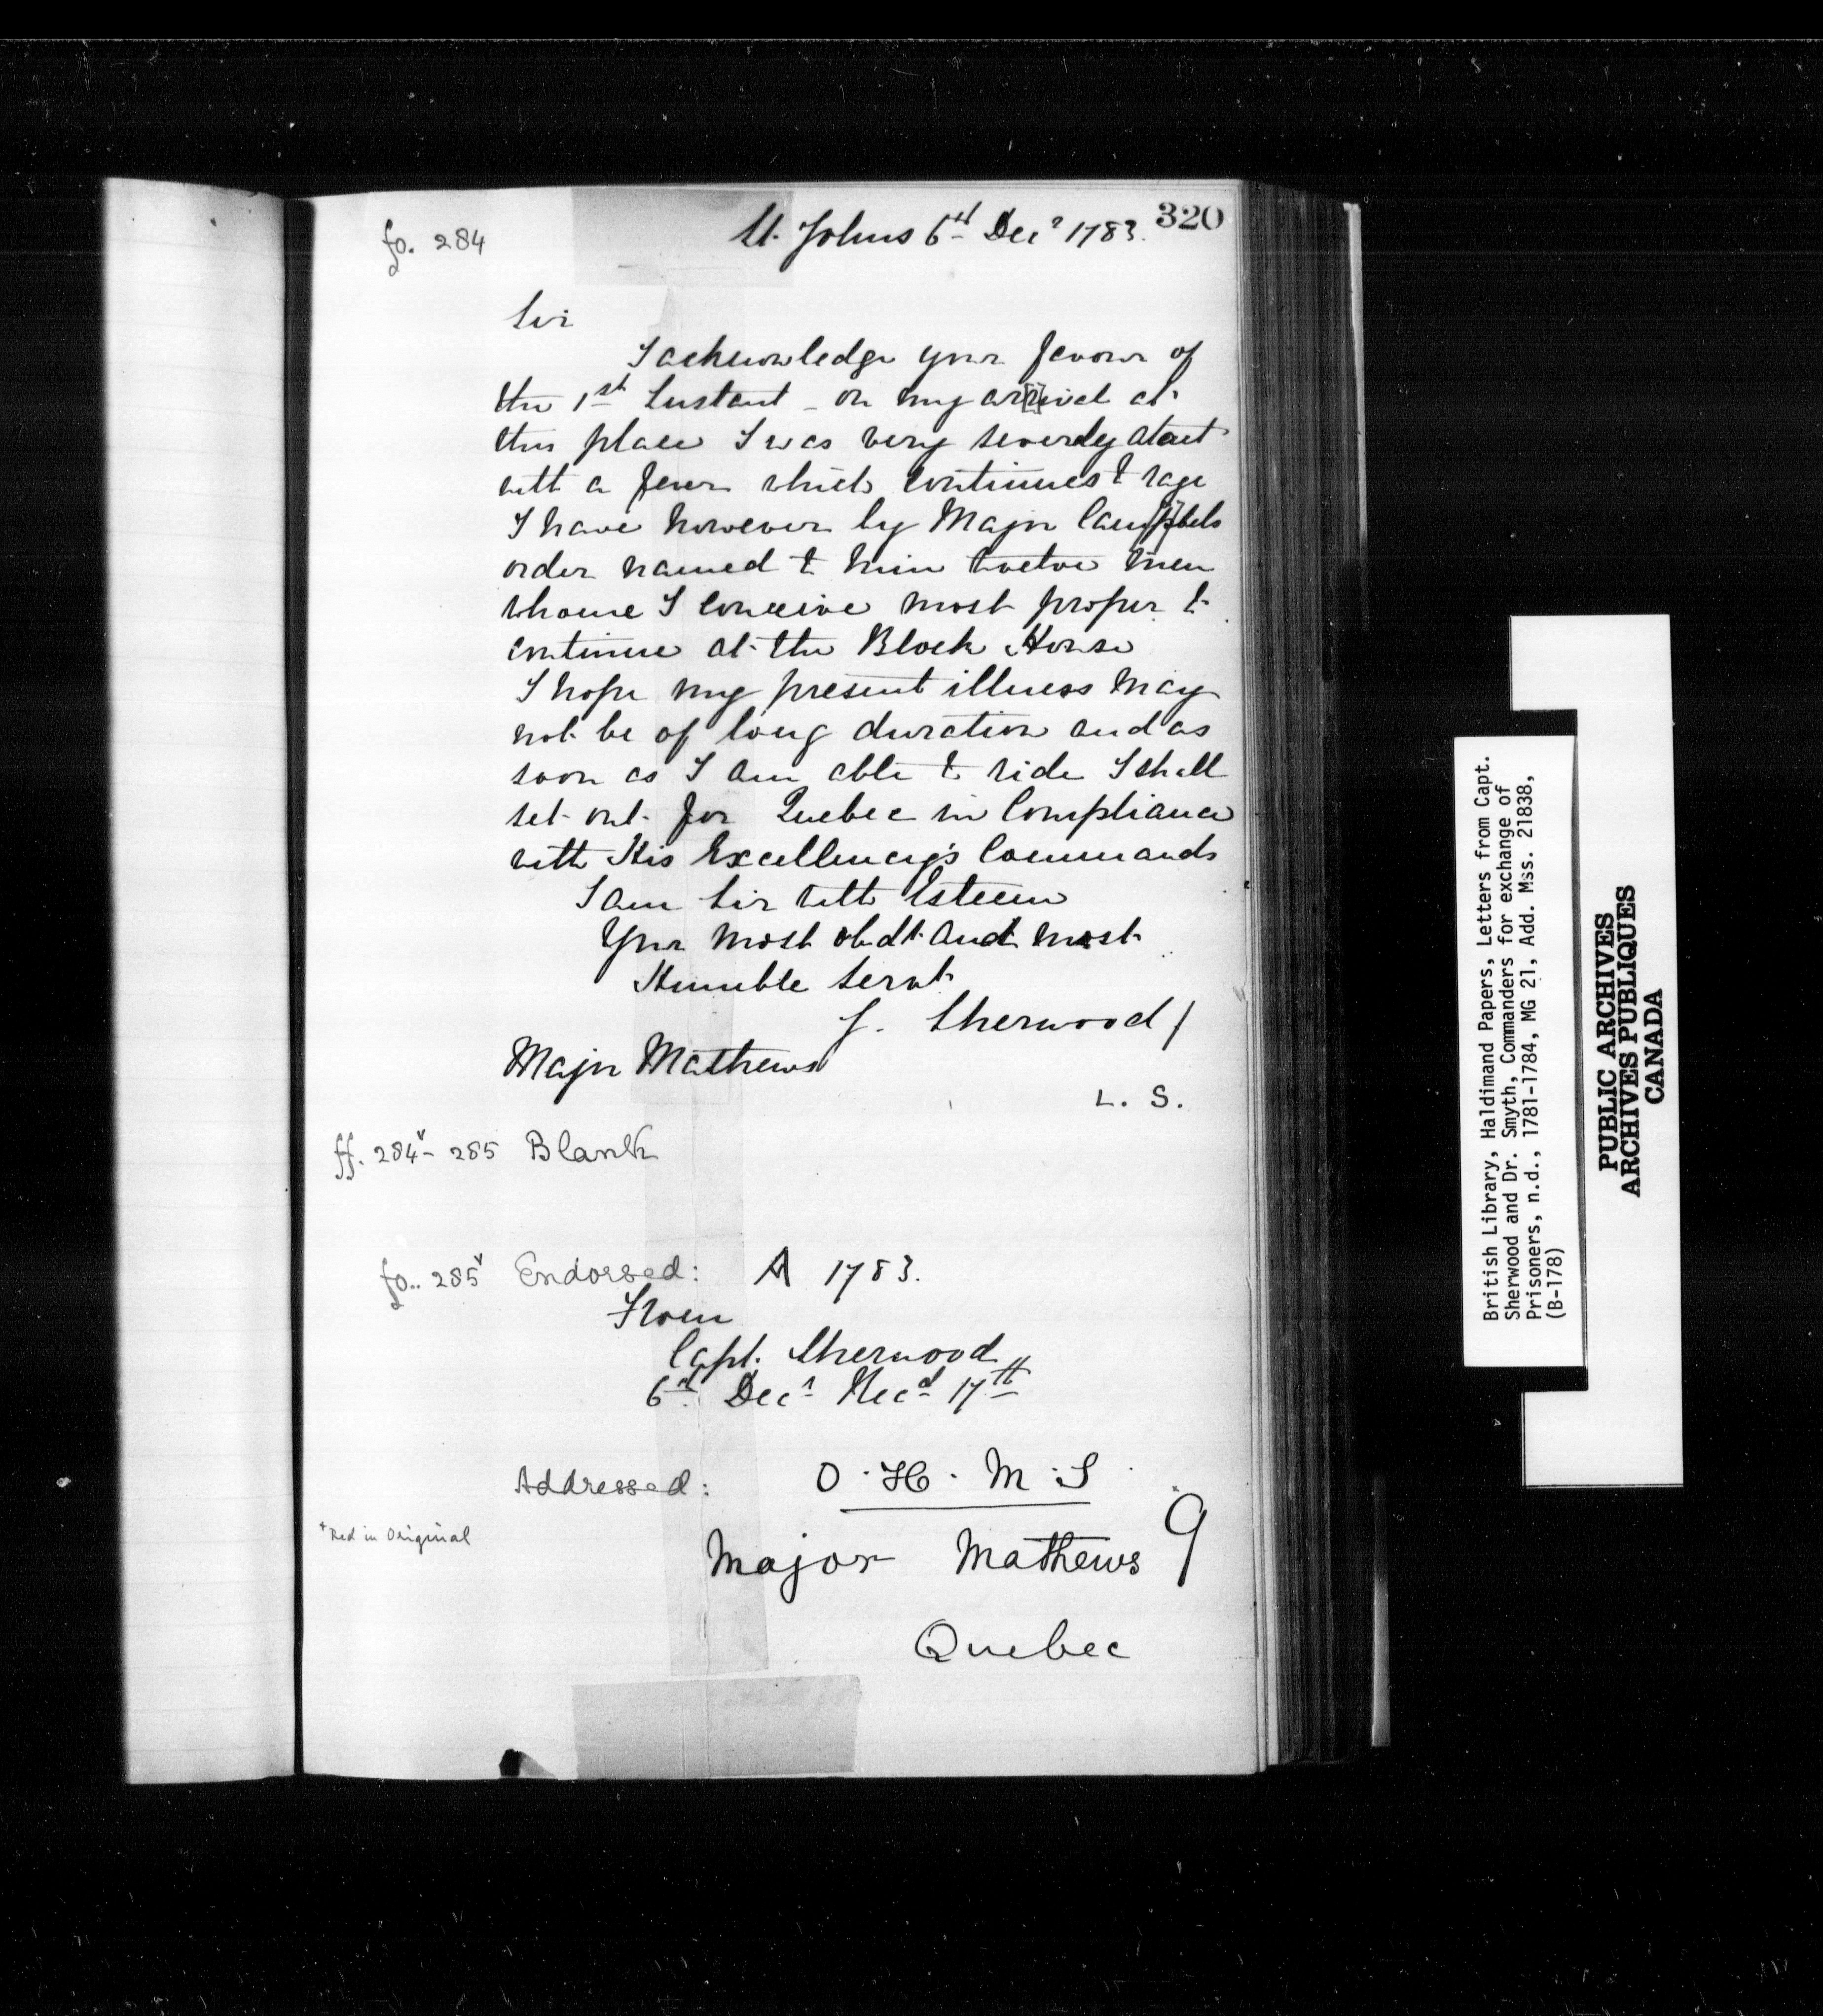 320
fo. 284
St. Johns 6th Decr 1783.
Sir
I acknowledge your favour of
the 1st Instant - on my ar[r]ival at
this place I was very severely
with a fever which continues to rage
I have however by Major Cam[p]bels
order named to him twelve men
whome I conceive most proper to
continue at the Block House
I hope my present illness may
not be of long duration and as
soon as I am able to ride I shall
set out for Quebec in Compliance
with His Excellency's Commands
I am Sir with Esteem
Your most obdt and most
Humble Servt
J. Sherwood /
Major Mathews
L. S.
ff. 284v - 285 Blank
fo. 285v Endorsed: A 1783.
From
Capt. Sherwood
6th Decr Recd 17th
Addressed: O. H. M. S
+Red in Original
Major Mathews 9
Quebec
British Library, Haldimand Papers, Letters from Capt.
Sherwood and Dr. Smyth, Commanders for exchange of
Prisoners, n.d., 1781-1784, MG 21, Add. Mss. 21838,
(B-178)
PUBLIC ARCHIVES
ARCHIVES PUBLIQUES
CANADA